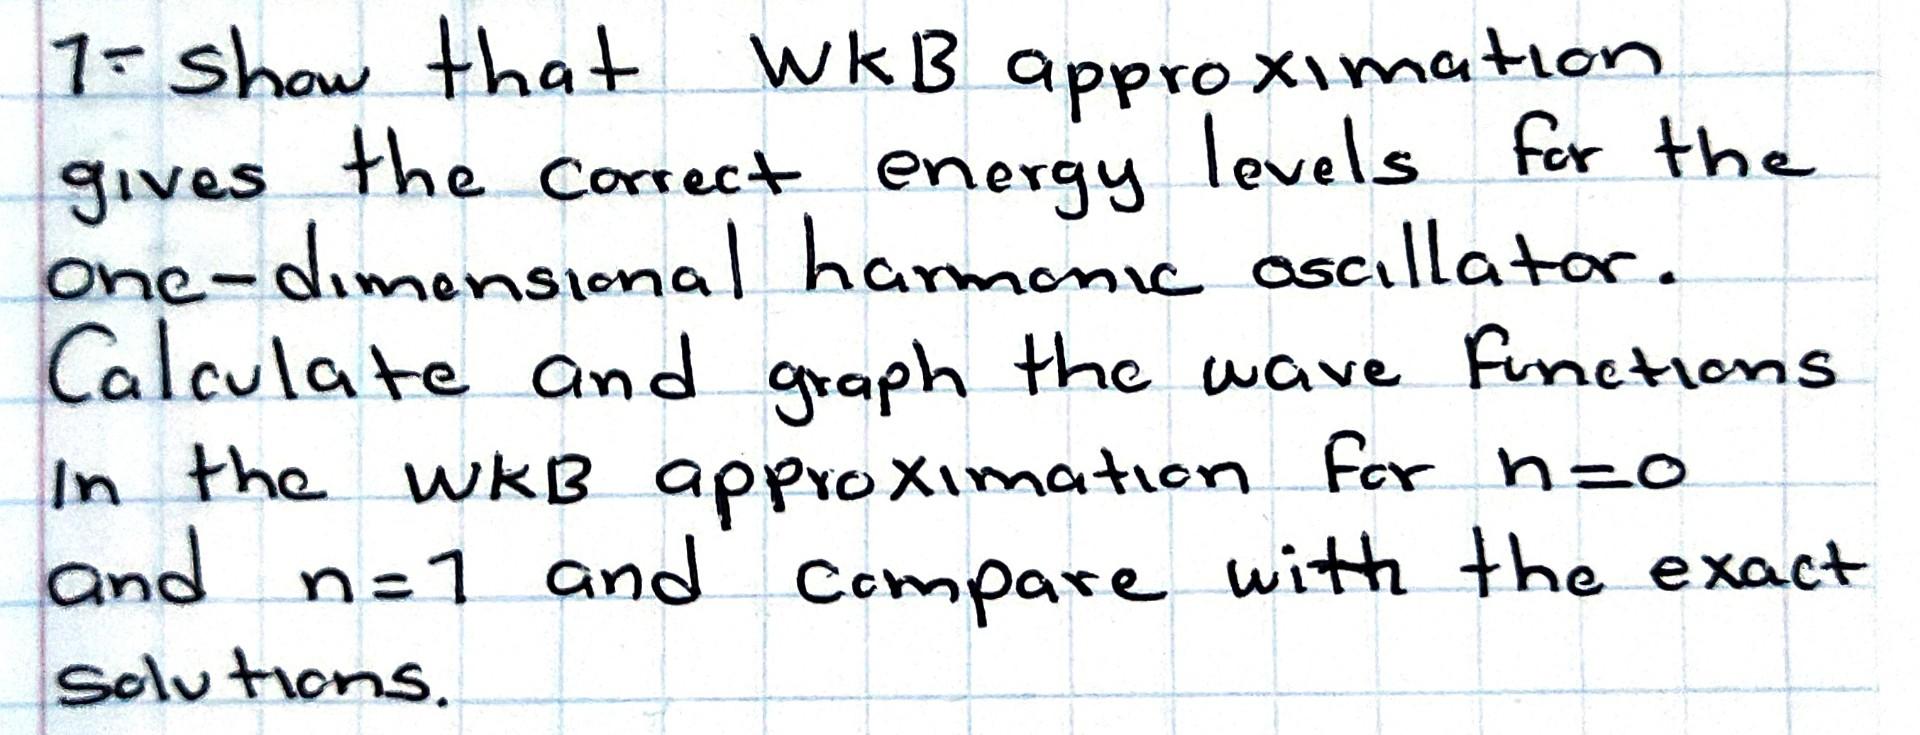 1- Show that WKB approximation
gives the correct energy levels for the
one-dimensional harmonic oscillator.
Calculate and graph the wave functions
in the WKB approximation for n=0
and n=1 and compare with the exact
solutions.